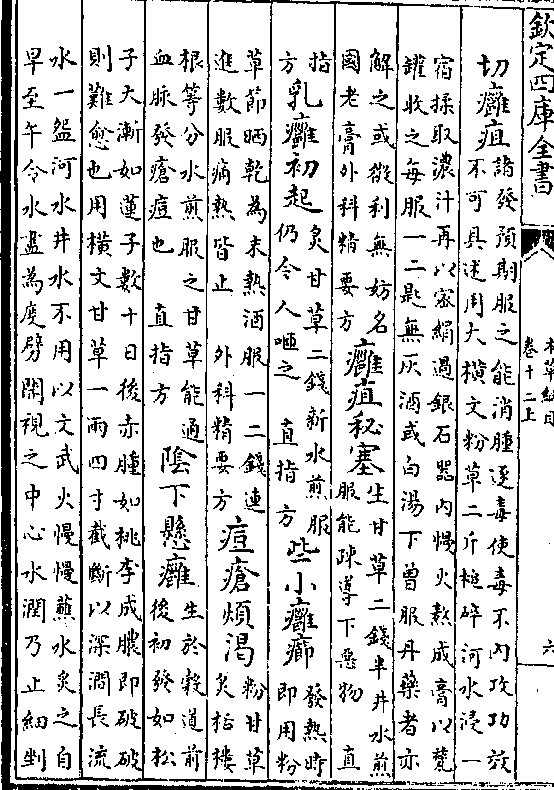 欽定四庫全書
本草綱目
卷十二上
六
切癰疽
諸發預期服之能消腫逐毒使毒不内攻功效
不可具述用大横文粉草二斤槌碎河水浸一
宿揉取濃汁再以密絹過銀石器内慢火熬成膏以甆
罐收之每服一二匙無灰酒或白湯下曾服丹藥者亦
解之或微利無妨名
國老膏外科精要方
癰疽秘塞
生甘草二錢半井水煎
服能疎導下惡物 直
指
方
乳癰初起
炙甘草二錢新水煎服
仍令人咂之 直指方
些小癰癤
發熱時
即用粉
草節晒乾為末熱酒服一二錢連
進數服痛熱皆止 外科精要方
痘瘡煩渴
粉甘草
炙栝樓
根等分水煎服之甘草能通
血脉發瘡痘也 直指方
陰下懸癰
生於穀道前
後初發如松
子大漸如蓮子數十日後赤腫如桃李成膿即破破
則難愈也用横文甘草一兩四寸截斷以深澗長流
水一盌河水井水不用以文武火慢慢蘸水炙之自
早至午令水盡為度劈開視之中心水潤乃止細剉